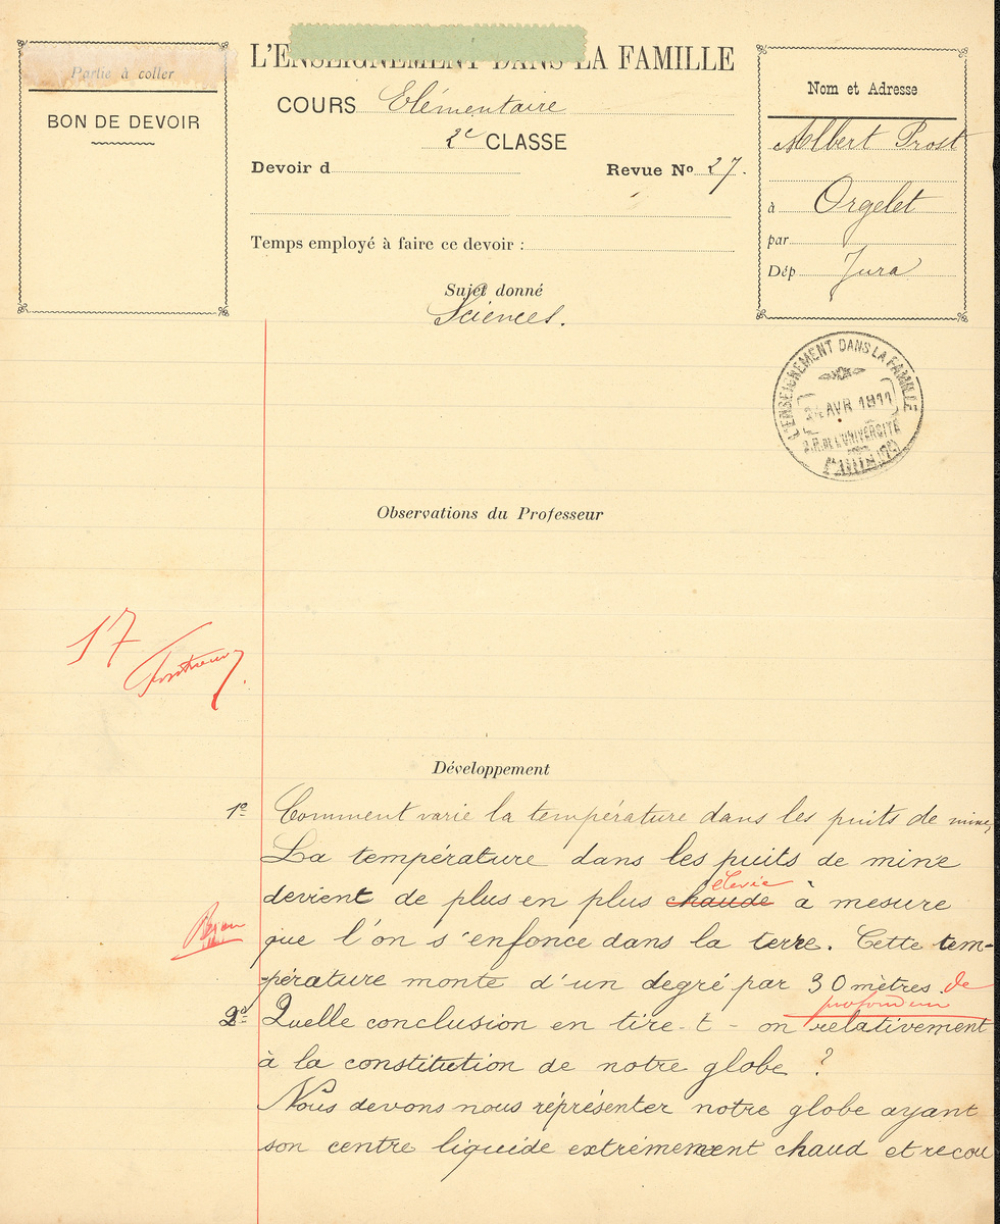 Partie à coller
BON DE DEVOIR
L'ENSEIGNEMENT DANS LA FAMILLE
COURS Elémentaire
2e CLASSE
Devoir d
Revue No 27.
Temps employé à faire ce devoir :
Sujet donné
Sciences.
Nom et Adresse
Albert Prost
à Orgelet
par
Dép Jura
L'ENSEIGNEMENT DANS LA FAMILLE
AVR 1911
DE L'UNIVERSITÉ
PARIS
Observations du Professeur
17
Développement
1o Comment varie la température dans les puits de mine,
La température dans les puits de mine
élevée
devient de plus en plus chaude à mesure
que l'on s'enfonce dans la terre. Cette tem-
pérature monte d'un degré par 30 mètres. de
profondeur
2o Quelle conclusion en tire-t-on relativement
à la constitution de notre globe ?
Nous devons nous réprésenter notre globe ayant
son centre liquide extrêmement chaud et recou